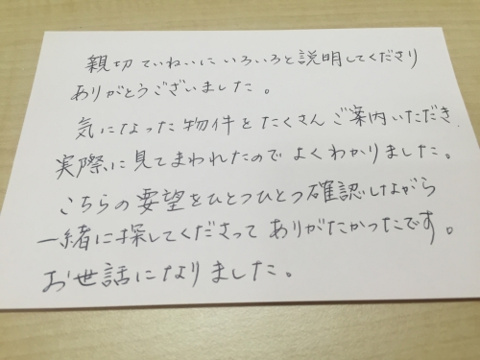 親切ていねいにいろいろと説明してくださり
ありがとうございました。
気になった物件をたくさんご案内いただき
実際に見てまわれたのでよくわかりました。
こちらの要望をひとつひとつ確認しながら
一緒に探してくださってありがたかったです。
お世話になりました。